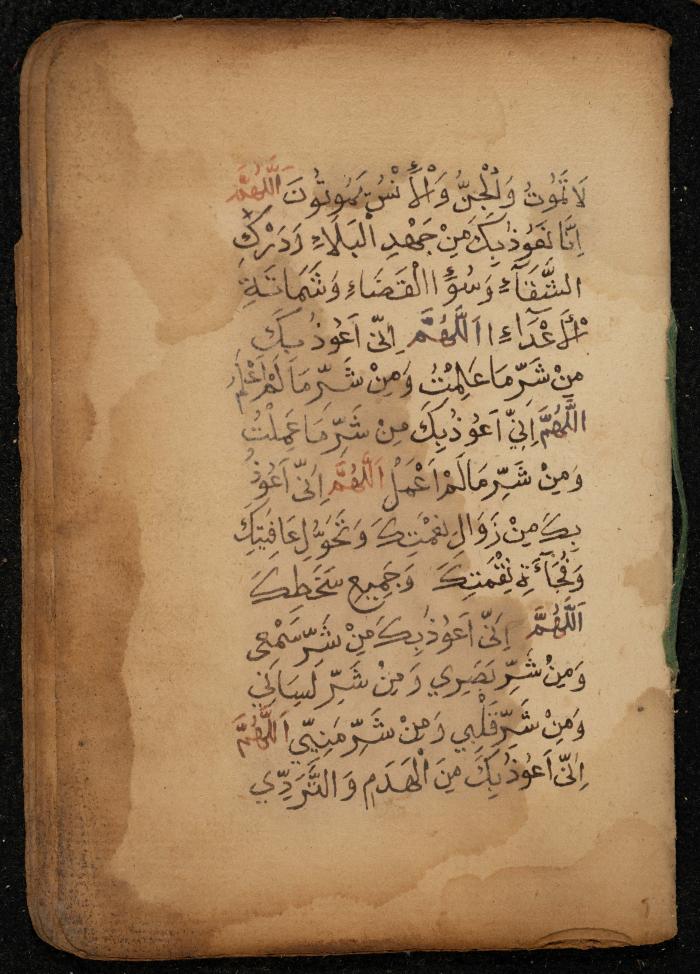 لَا تَمُوتُ وَالْجِنُّ وَالْأِنْسُ يَمُوتُونَ اَللّٰهُمَّ
اِنَّا نَعُوذُ بِكَ مِنْ جَهْدِ الْبَلَاءِ وَدَرْكِ
الشَّقَآءِ وَسُوْٓءِ الْقَضَاءِ وَشَمَاتَةِ
الْأَعْدَآءِ اَللّٰهُمَّ اِنِّي اَعُوذُ بِكَ
مِنْ شَرِّ مَا عَلِمْتُ وَمِنْ شَرِّ مَا لَمْ اَعْلَمْ
اَللّٰهُمَّ اِنِّي اَعُوذُ بِكَ مِنْ شَرِّ مَا عَمِلْتُ
وَمِنْ شَرِّ مَا لَمْ اَعْمَلْ اَللّٰهُمَّ اِنِّي اَعُوذُ
بِكَ مِنْ زَوَالِ نِعْمَتِكَ وَتَحَوُّلِ عَافِيَتِكَ
وَفُجَآءَةِ نِقْمَتِكَ وَجَمِيعِ سَخَطِكَ
اَللّٰهُمَّ اِنِّي اَعُوذُ بِكَ مِنْ شَرِّ سَمْعِى
وَمِنْ شَرِّ بَصَرِي وَمِنْ شَرِّ لِسَانِي
وَمِنْ شَرِّ قَلْبِي وَمِنْ شَرِّ مَنِيِّي اَللّٰهُمَّ
اِنِّي اَعُوذُ بِكَ مِنَ الْهَدَمِ وَالتَّرَدِّي